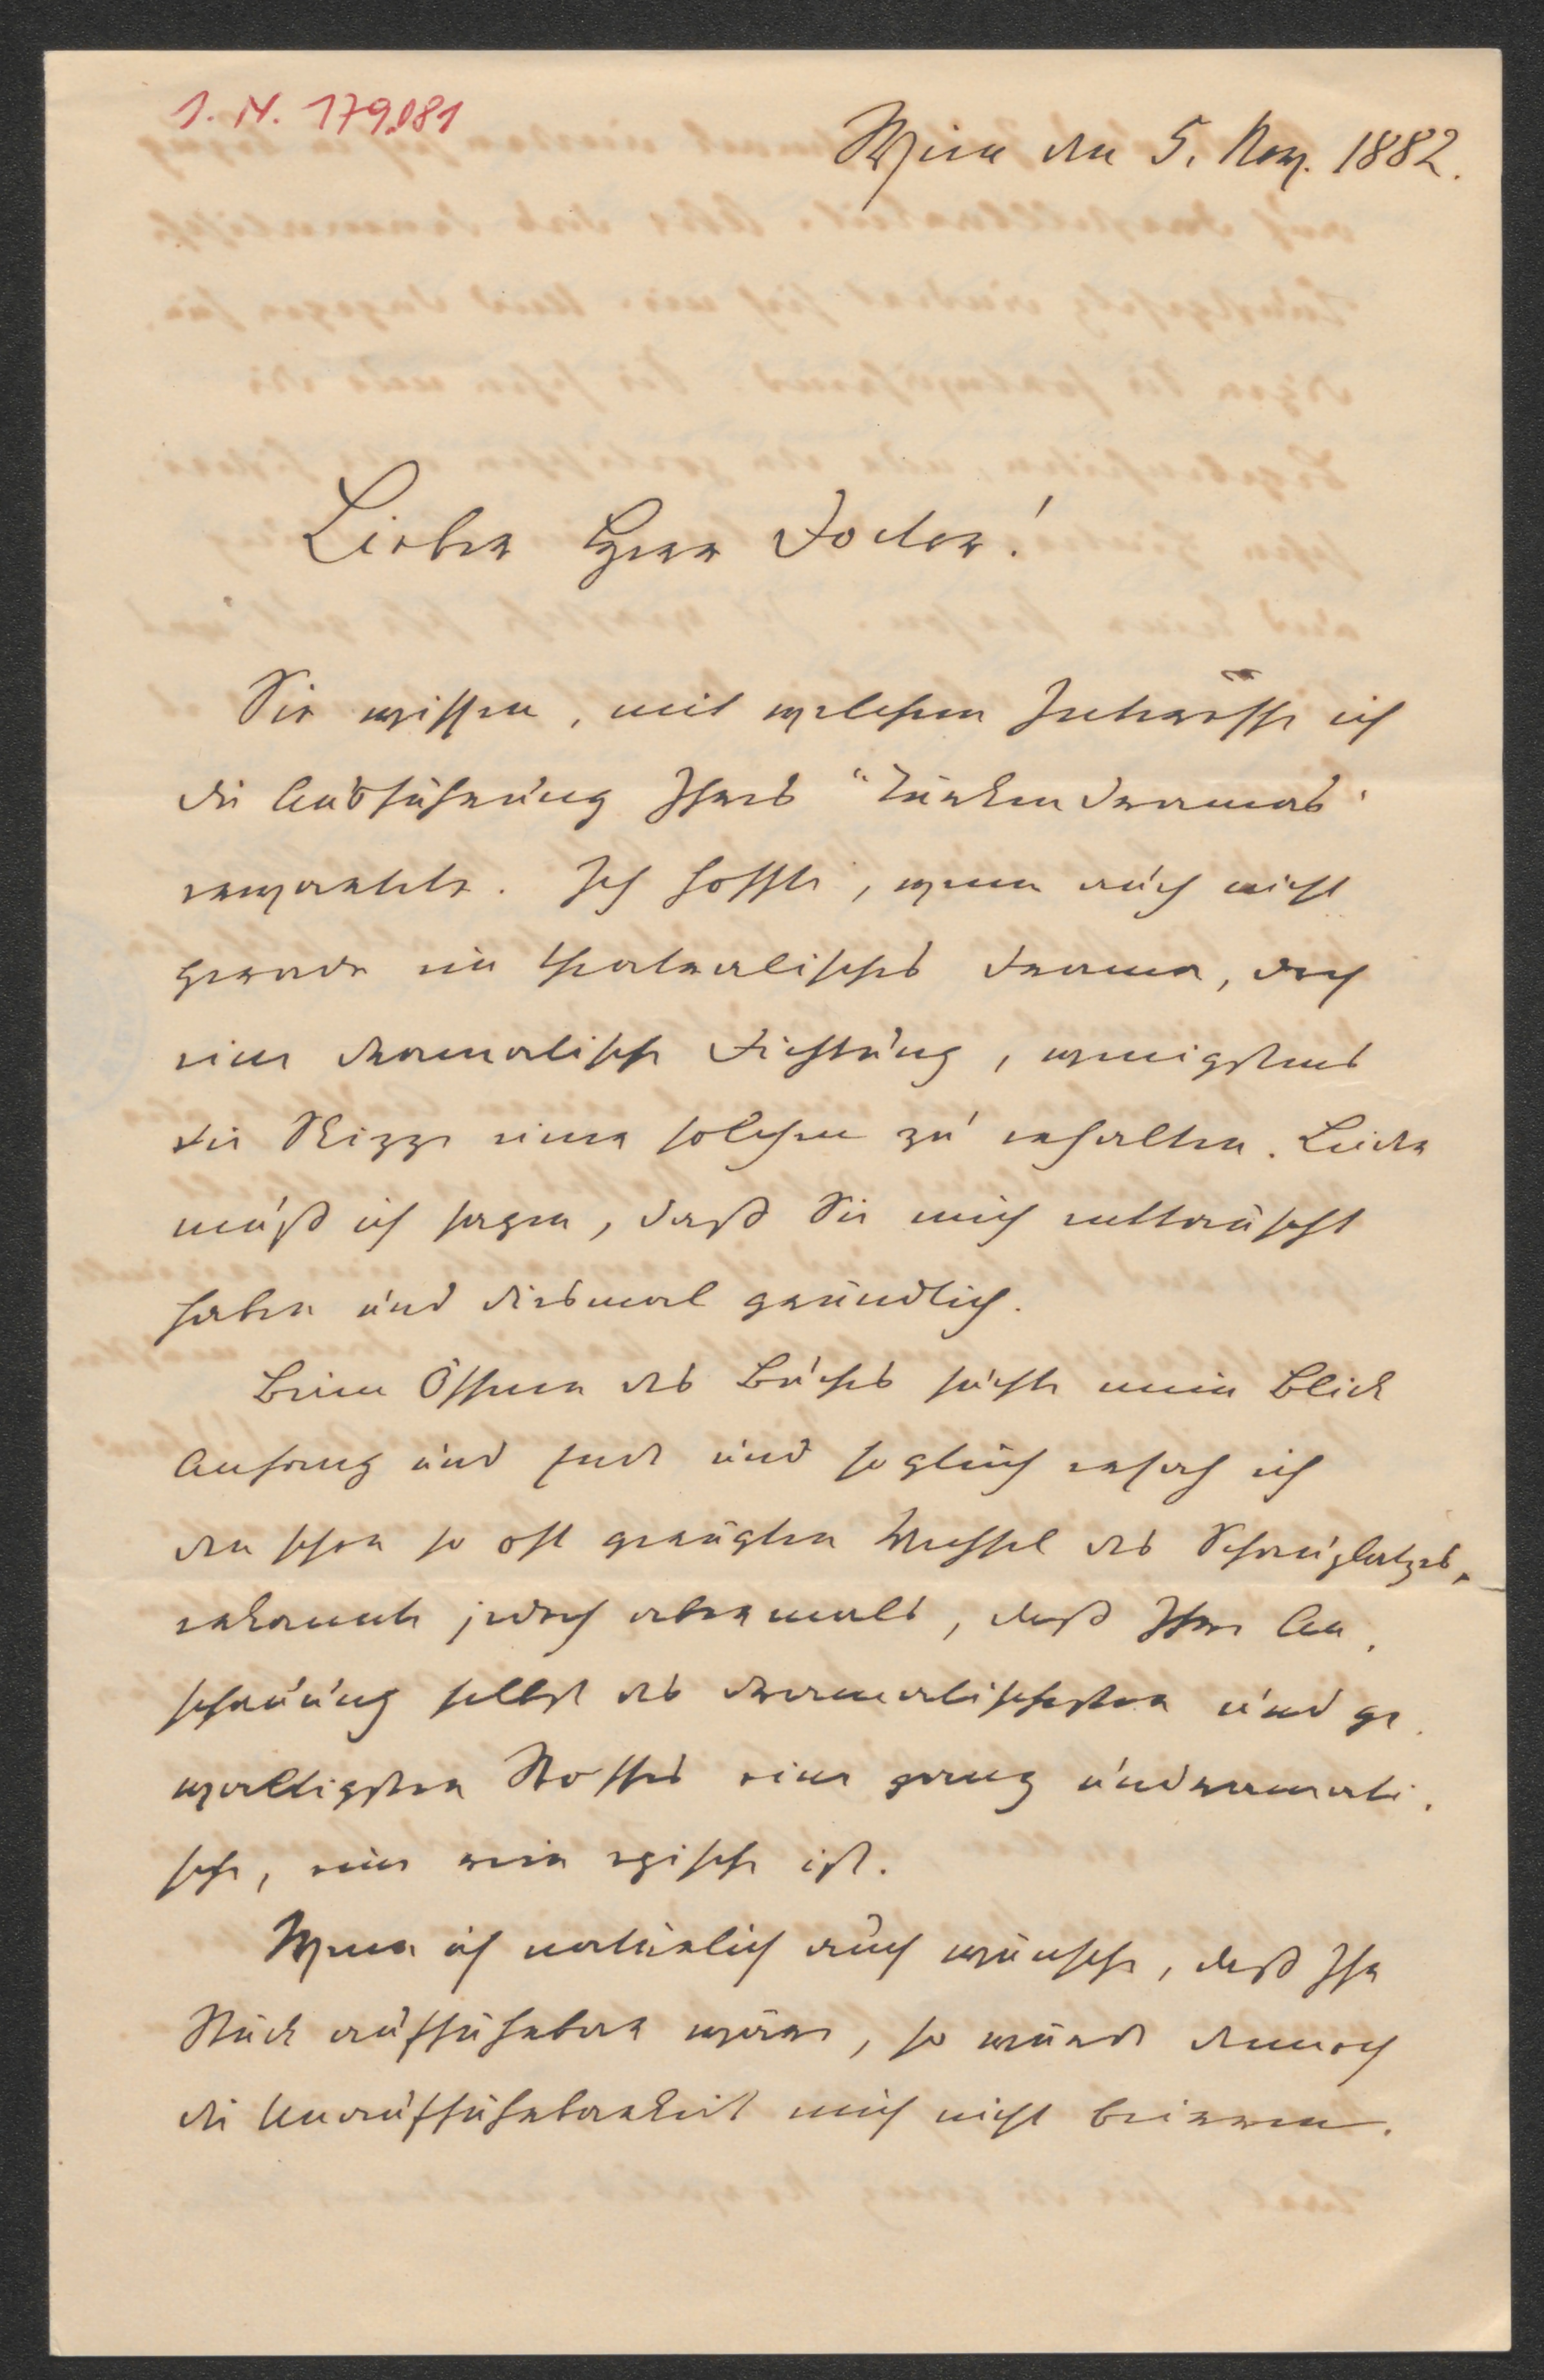 I. N. 179.081
Wien den 5. Nov. 1882.
Lieber Herr Doctor!
Sie wissen, mit welchem Interesse ich
die Ausführung Ihres "Türkendramas"
erwartete. Ich hoffte, wenn auch nicht
gerade ein theatralisches Drama, doch
eine dramatische Dichtung, wenigstens
die Skizze einer solchen zu erhalten. Leider
muß ich sagen, daß Sie mich enttäuscht
haben und diesmal gründlich.
Beim Öffnen des Buches suchte mein Blick
Anfang und Ende und sogleich ersah ich
den schon so oft gerügten Wechsel des Schauplatzes,
erkannte jedoch abermals, daß Ihre An-
schauung selbst des dramatischesten und ge-
waltigsten Stoffes eine ganz undramati-
sche, eine rein epische ist.
Wenn ich natürlich auch wünsche, daß Ihr
Stück aufführbar wäre, so würde dennoch
die Unaufführbarkeit mich nicht beirren.